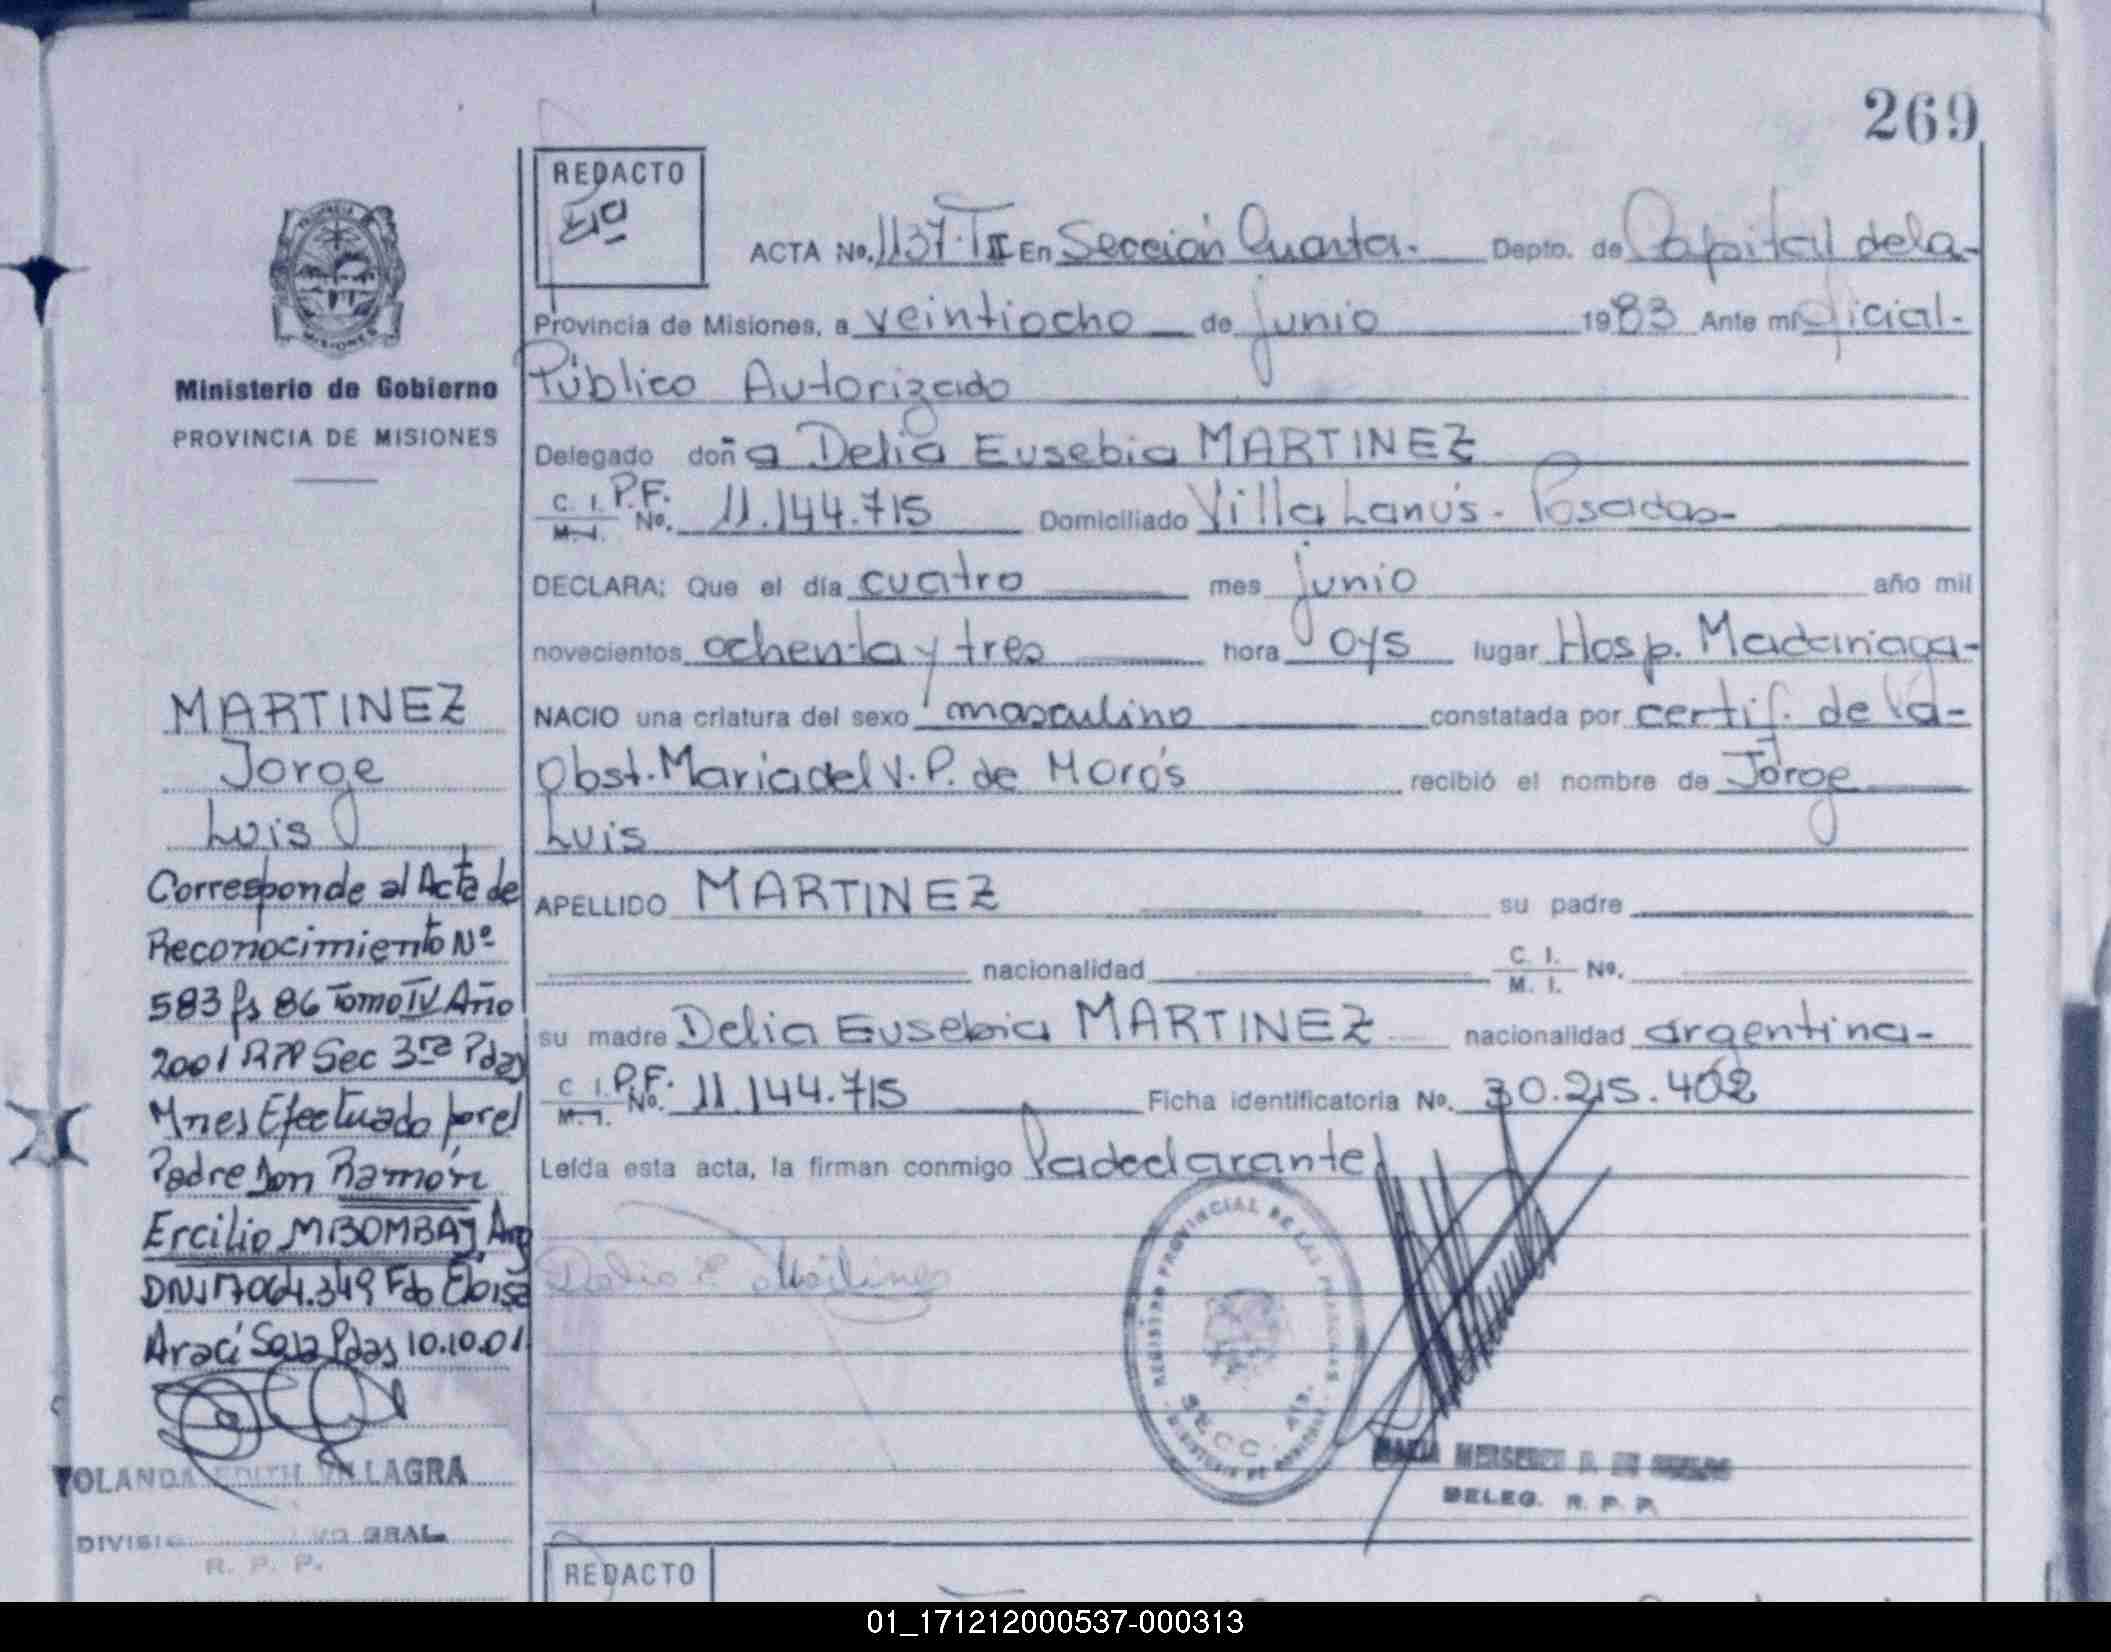 269
REDACTO
ACTA No. 1137. TII En Sección Cuarta. Depto. de Capital de la-
Provincia de Misiones, a veintiocho de junio 1983 Ante mí Oficial-
Público Autorizado
Delegado doña Delia Eusebia MARTINEZ
C. I. P.F.
M. I. No. 11.144.715 Domiciliado Villa Lanús - Posadas-
DECLARA: Que el día cuatro mes junio año mil
novecientos ochenta y tres hora 0y5 lugar Hosp. Madariaga-
NACIO una criatura del sexo masculino constatada por certif. de la-
Obst. Maria del V. P. de Morós recibió el nombre de Jorge
Luis
APELLIDO MARTINEZ su padre
nacionalidad C. I.
M. I. No.
su madre Delia Eusebia MARTINEZ nacionalidad argentina-
C. I. P.F.
M. I. No. 11.144.715 Ficha identificatoria No. 30.215.402
Leída esta acta, la firman conmigo la declarante
Delia E Martinez
REGISTRO PROVINCIAL DE LAS PERSONAS
SECC. 4ta.
DELEG. R. P. P.
Ministerio de Gobierno
PROVINCIA DE MISIONES
MARTINEZ
Jorge
Luis
Corresponde al Acta de
Reconocimiento Nº
583 fs 86 Tomo IV Año
2001 RPP Sec 3ra Pdas
Mnes Efectuado por el
Padre Don Ramón
Ercilio MBOMBAJ Arg
DNI 17064.349 Fdo Eloisa
Araci Sosa Pdas 10.10.01
YOLANDA EDITH VILLAGRA
GRAL
R. P. P.
REDACTO
01_171212000537-000313